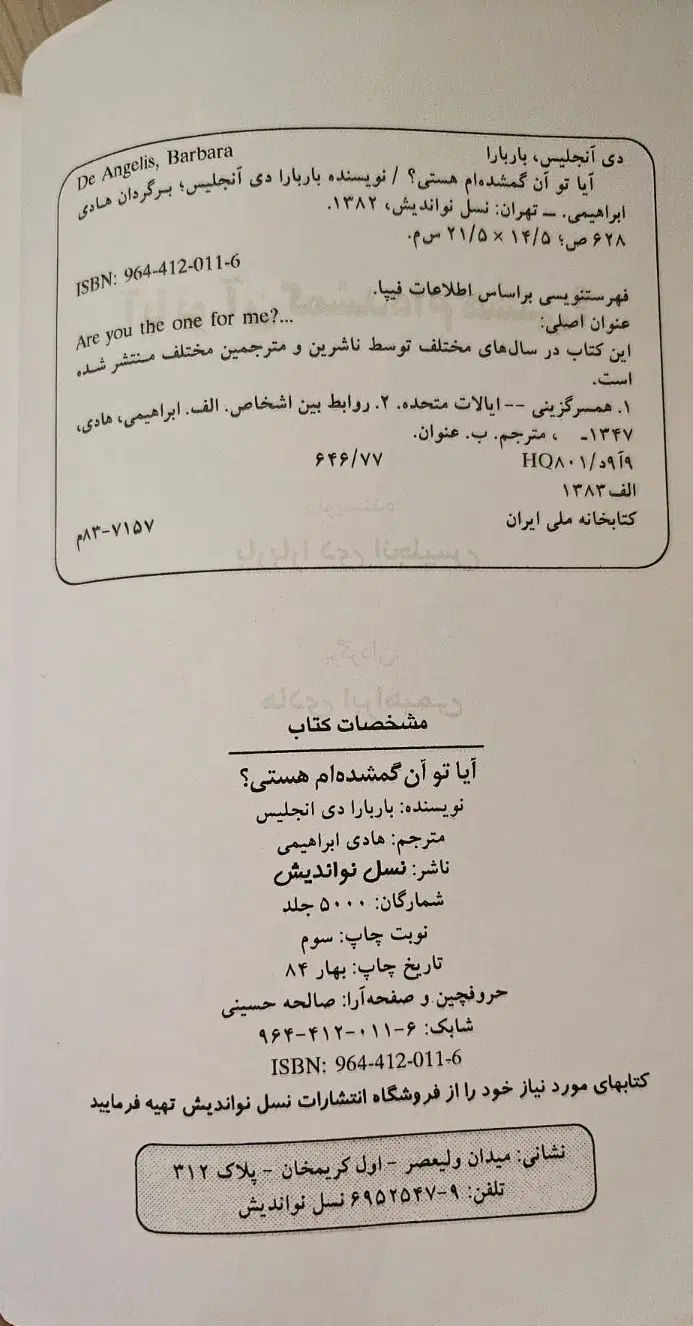 دی آنجلیس، باربارا De Angelis, Barbara
آیا تو آن گمشده‌ام هستی؟ / نویسنده باربارا دی آنجلیس؛ برگردان هادی
ابراهیمی. ــ تهران: نسل نواندیش، ۱۳۸۲.
۶۲۸ ص؛ ۱۴/۵ × ۲۱/۵ س‌م.
ISBN: 964-412-011-6
فهرستنویسی براساس اطلاعات فیپا.
عنوان اصلی: Are you the one for me?...
این کتاب در سال‌های مختلف توسط ناشرین و مترجمین مختلف منتشر شده
است.
۱. همسرگزینی -- ایالات متحده. ۲. روابط بین اشخاص. الف. ابراهیمی، هادی،
۱۳۴۷ـ ، مترجم. ب. عنوان.
۹آ۹د/HQ۸۰۱ ۶۴۶/۷۷
الف ۱۳۸۳
کتابخانه ملی ایران ۷۱۵۷-۸۳م
نویسنده:
باربارا دی انجلیس
برگردان:
هادی ابراهیمی
مشخصات کتاب
آیا تو آن گمشده‌ام هستی؟
نویسنده: باربارا دی انجلیس
مترجم: هادی ابراهیمی
ناشر: نسل نواندیش
شمارگان: ۵۰۰۰ جلد
نوبت چاپ: سوم
تاریخ چاپ: بهار ۸۴
حروفچین و صفحه‌آرا: صالحه حسینی
شابک: ۶-۰۱۱-۴۱۲-۹۶۴
ISBN: 964-412-011-6
کتابهای مورد نیاز خود را از فروشگاه انتشارات نسل نواندیش تهیه فرمایید
نشانی: میدان ولیعصر - اول کریمخان - پلاک ۳۱۲
تلفن: ۹-۶۹۵۲۵۴۷ نسل نواندیش